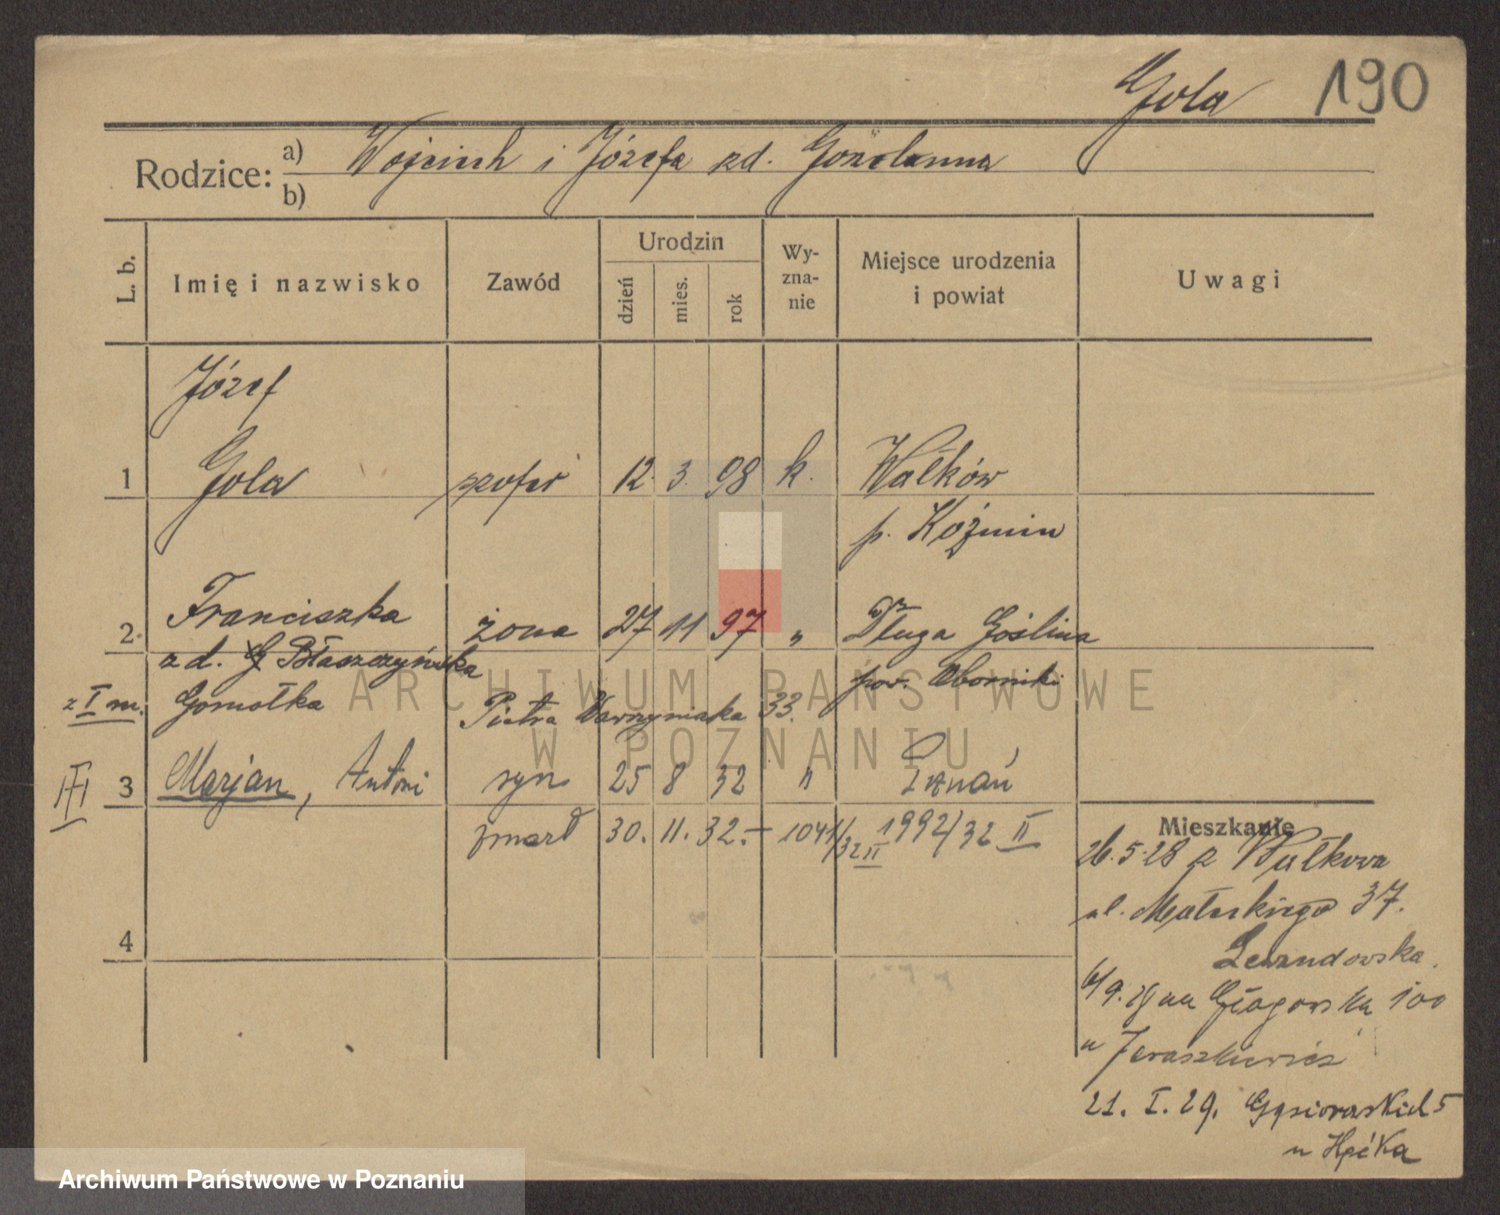 Gola 190
Rodzice: a) Wojciech i Józefa zd.
b)
L. b. Imię i nazwisko Zawód Urodzin dzień mies. rok Wy-zna-nie Miejsce urodzenia i powiat Uwagi
Józef
1 Gola szofer 12. 3. 98 k. Wałków
p. Koźmin
Franciszka
2. żona 27 11 97 " Długa Goślina
z d. Błaszczyńska pow. Oborniki
z I m. Gomółka Piotra Wawrzyniaka 33.
3 Marjan, Antoni syn 25 8 32 " Poznań
zmarł 30. 11. 32. – 1041/32 II 1992/32 II
Mieszkanie
26. 5. 28 z Wałkowa
ul. 37.
4
Lewandowska
6/9. 28 na Głogowska 100
u Jeraszkiewicz
21. I. 29. Gąsiorowskich 5
u
ARCHIWUM PAŃSTWOWE
W POZNANIU
Archiwum Państwowe w Poznaniu